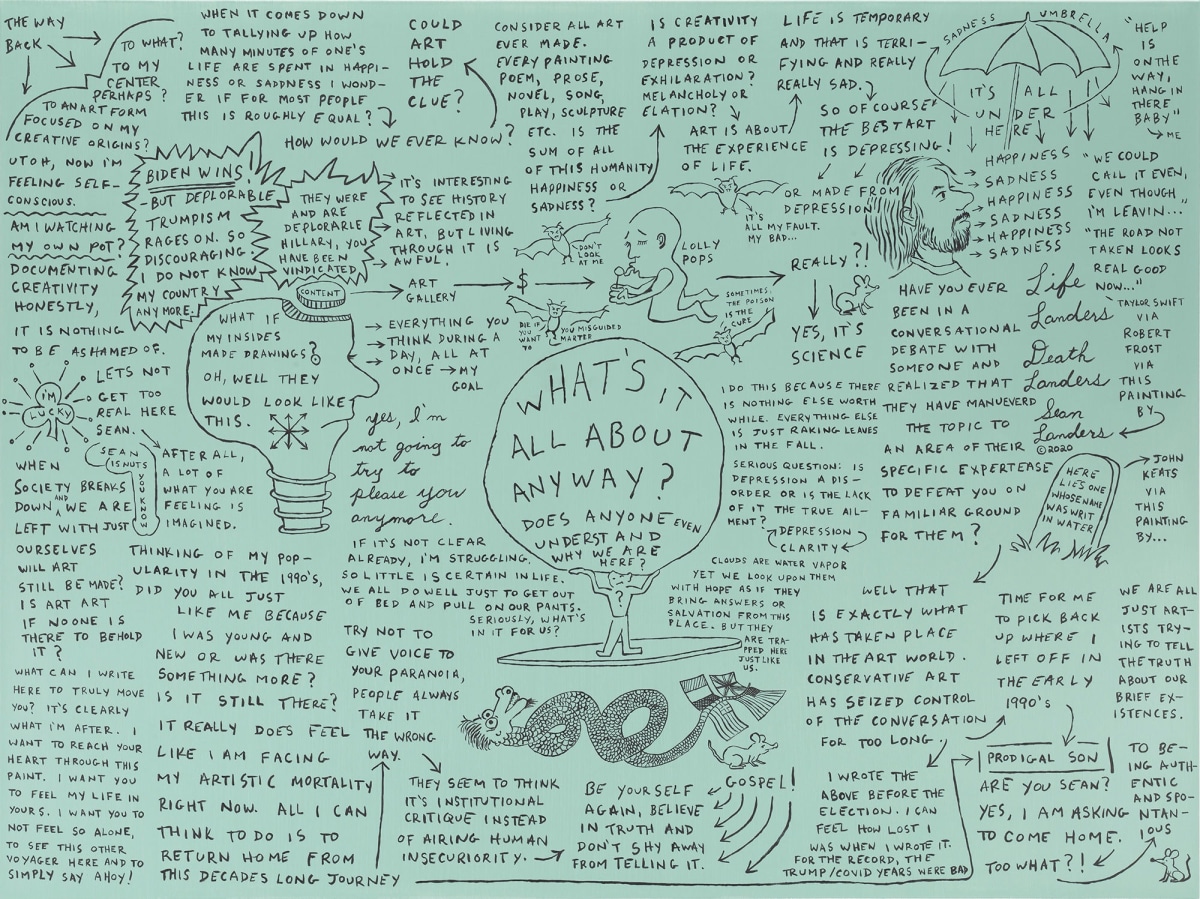 THE WAY
BACK
TO WHAT?
TO MY
CENTER
PERHAPS?
TO AN ART FORM
FOCUSED ON MY
CREATIVE ORIGINS?
UTOH, NOW I'M
FEELING SELF-
CONSCIOUS.
AM I WATCHING
MY OWN POT?
DOCUMENTING
CREATIVITY
HONESTLY,
IT IS NOTHING
TO BE ASHAMED OF.
LETS NOT
GET TOO
REAL HERE
SEAN.
I'M
LUCKY
SEAN
IS NUTS
YOU KNOW
WHEN
SOCIETY BREAKS
DOWN AND WE ARE
LEFT WITH JUST
OURSELVES
WILL ART
STILL BE MADE?
IS ART ART
IF NO ONE IS
THERE TO BEHOLD
IT?
WHAT CAN I WRITE
HERE TO TRULY MOVE
YOU? IT'S CLEARLY
WHAT I'M AFTER. I
WANT TO REACH YOUR
HEART THROUGH THIS
PAINT. I WANT YOU
TO FEEL MY LIFE IN
YOURS. I WANT YOU TO
NOT FEEL SO ALONE,
TO SEE THIS OTHER
VOYAGER HERE AND TO
SIMPLY SAY AHOY!
WHEN IT COMES DOWN
TO TALLYING UP HOW
MANY MINUTES OF ONE'S
LIFE ARE SPENT IN HAPPI-
NESS OR SADNESS I WOND-
ER IF FOR MOST PEOPLE
THIS IS ROUGHLY EQUAL?
HOW WOULD WE EVER KNOW?
COULD
ART
HOLD
THE
CLUE?
BIDEN WINS!
-BUT DEPLORABLE
TRUMPISM
RAGES ON. SO
DISCOURAGING.
I DO NOT KNOW
MY COUNTRY
ANY MORE.
THEY WERE
AND ARE
DEPLORABLE
HILLARY, YOU
HAVE BEEN
VINDICATED
IT'S INTERESTING
TO SEE HISTORY
REFLECTED IN
ART, BUT LIVING
THROUGH IT IS
AWFUL.
CONTENT
ART
GALLERY
$
WHAT IF
MY INSIDES
MADE DRAWINGS?
OH, WELL THEY
WOULD LOOK LIKE
THIS.
EVERYTHING YOU
THINK DURING A
DAY, ALL AT
ONCE
MY
GOAL
yes, I'm
not going to
try to
please you
anymore.
AFTER ALL,
A LOT OF
WHAT YOU ARE
FEELING IS
IMAGINED.
THINKING OF MY POP-
ULARITY IN THE 1990'S,
DID YOU ALL JUST
LIKE ME BECAUSE
I WAS YOUNG AND
NEW OR WAS THERE
SOMETHING MORE?
IS IT STILL THERE?
IT REALLY DOES FEEL
LIKE I AM FACING
MY ARTISTIC MORTALITY
RIGHT NOW. ALL I CAN
THINK TO DO IS TO
RETURN HOME FROM
THIS DECADES LONG JOURNEY
IF IT'S NOT CLEAR
ALREADY, I'M STRUGGLING.
SO LITTLE IS CERTAIN IN LIFE.
WE ALL DO WELL JUST TO GET OUT
OF BED AND PULL ON OUR PANTS.
SERIOUSLY, WHAT'S
IN IT FOR US?
TRY NOT TO
GIVE VOICE TO
YOUR PARANOIA,
PEOPLE ALWAYS
TAKE IT
THE WRONG
WAY.
THEY SEEM TO THINK
IT'S INSTITUTIONAL
CRITIQUE INSTEAD
OF AIRING HUMAN
INSECURIORITY.
BE YOURSELF
AGAIN, BELIEVE
IN TRUTH AND
DON'T SHY AWAY
FROM TELLING IT.
GOSPEL!
CONSIDER ALL ART
EVER MADE.
EVERY PAINTING
POEM, PROSE,
NOVEL, SONG,
PLAY, SCULPTURE
ETC. IS THE
SUM OF ALL
OF THIS HUMANITY
HAPPINESS OR
SADNESS?
IS CREATIVITY
A PRODUCT OF
DEPRESSION OR
EXHILARATION?
MELANCHOLY OR
ELATION?
ART IS ABOUT
THE EXPERIENCE
OF LIFE.
LIFE IS TEMPORARY
AND THAT IS TERRI-
FYING AND REALLY
REALLY SAD.
SO OF COURSE
THE BEST ART
IS DEPRESSING!
OR MADE FROM
DEPRESSION
DON'T
LOOK
AT ME
IT'S
ALL MY FAULT.
MY BAD...
LOLLY
POPS
DIE IF
YOU
WANT
TO
YOU MISGUIDED
MARTYR
SOMETIMES,
THE POISON
IS THE
CURE
REALLY?!
YES, IT'S
SCIENCE
WHAT'S IT
ALL ABOUT
ANYWAY?
DOES ANYONE EVEN
UNDERSTAND
WHY WE ARE
HERE?
?
I DO THIS BECAUSE THERE
IS NOTHING ELSE WORTH
WHILE. EVERYTHING ELSE
IS JUST RAKING LEAVES
IN THE FALL.
SERIOUS QUESTION: IS
DEPRESSION A DIS-
ORDER OR IS THE LACK
OF IT THE TRUE AIL-
MENT?
DEPRESSION
CLARITY
CLOUDS ARE WATER VAPOR
YET WE LOOK UPON THEM
WITH HOPE AS IF THEY
BRING ANSWERS OR
SALVATION FROM THIS
PLACE. BUT THEY
ARE TRA-
PPED HERE
JUST LIKE
US.
SADNESS UMBRELLA
IT'S ALL
UNDER
HERE
"HELP
IS
ON THE
WAY,
HANG IN
THERE
BABY"
ME
HAPPINESS
SADNESS
HAPPINESS
SADNESS
HAPPINESS
SADNESS
"WE COULD
CALL IT EVEN,
EVEN THOUGH
I'M LEAVIN..."
"THE ROAD NOT
TAKEN LOOKS
REAL GOOD
NOW..."
TAYLOR SWIFT
VIA
ROBERT
FROST
VIA
THIS
PAINTING
BY
Life
Landers
Death
Landers
Sean
Landers
©2020
HAVE YOU EVER
BEEN IN A
CONVERSATIONAL
DEBATE WITH
SOMEONE AND
REALIZED THAT
THEY HAVE MANUEVERD
THE TOPIC TO
AN AREA OF THEIR
SPECIFIC EXPERTEASE
TO DEFEAT YOU ON
FAMILIAR GROUND
FOR THEM?
HERE
LIES ONE
WHOSE NAME
WAS WRIT
IN WATER
JOHN
KEATS
VIA
THIS
PAINTING
BY...
WELL THAT
IS EXACTLY WHAT
HAS TAKEN PLACE
IN THE ART WORLD.
CONSERVATIVE ART
HAS SEIZED CONTROL
OF THE CONVERSATION
FOR TOO LONG.
I WROTE THE
ABOVE BEFORE THE
ELECTION. I CAN
FEEL HOW LOST I
WAS WHEN I WROTE IT.
FOR THE RECORD, THE
TRUMP/COVID YEARS WERE BAD
TIME FOR ME
TO PICK BACK
UP WHERE I
LEFT OFF IN
THE EARLY
1990's
PRODIGAL SON
ARE YOU SEAN?
YES, I AM ASKING
TO COME HOME.
TOO WHAT?!
WE ARE ALL
JUST ART-
ISTS TRY-
ING TO TELL
THE TRUTH
ABOUT OUR
BRIEF EX-
ISTENCES.
TO BE-
ING AUTH-
ENTIC
AND SPO-
NTAN-
IOUS